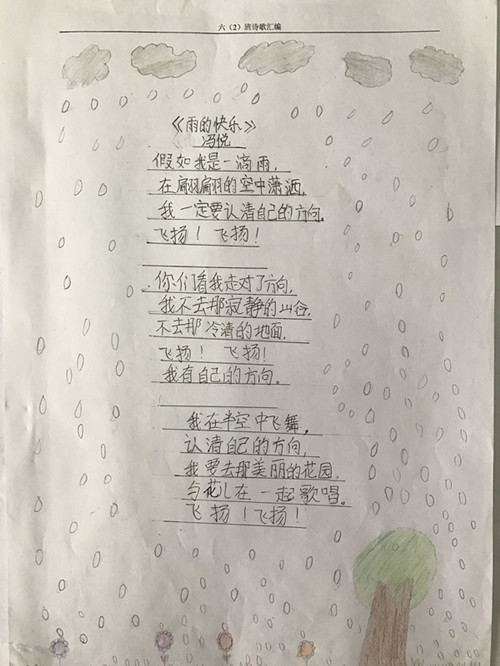 六（2）班诗歌汇编
《雨的快乐》
冯悦
假如我是一滴雨，
在翩翩的空中潇洒，
我一定要认清自己的方向。
飞扬！飞扬！
你们看我走对了方向，
我不去那寂静的山谷，
不去那冷清的地面，
飞扬！飞扬！
我有自己的方向。
我在半空中飞舞，
认清自己的方向，
我要去那美丽的花园，
与花儿在一起歌唱。
飞扬！飞扬！